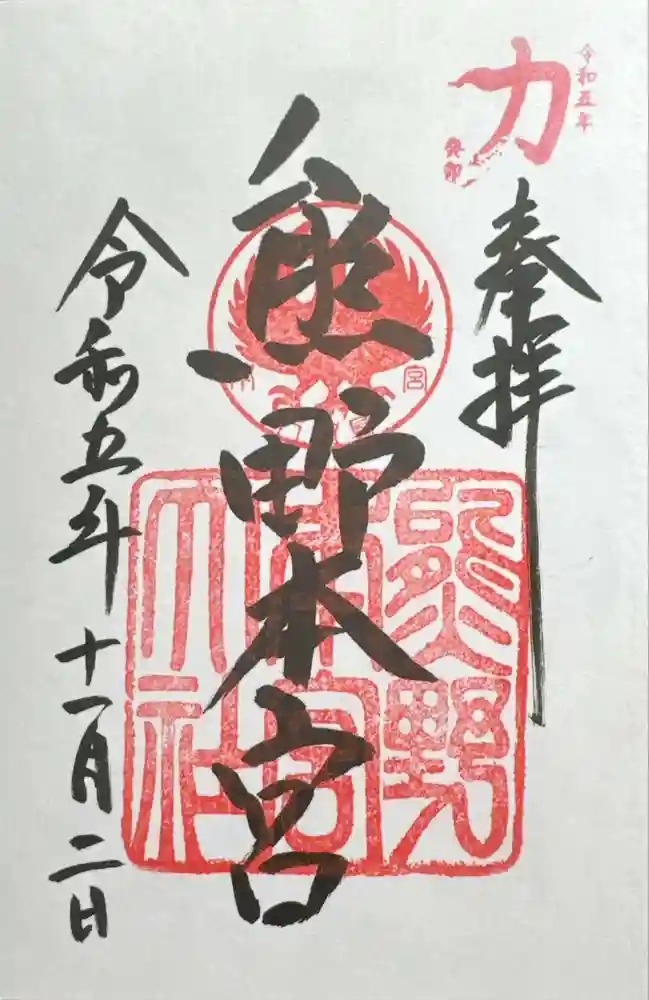 令和五年
力
奉拝
熊野本宮
熊野
本宮
大社
令和五年十一月二日